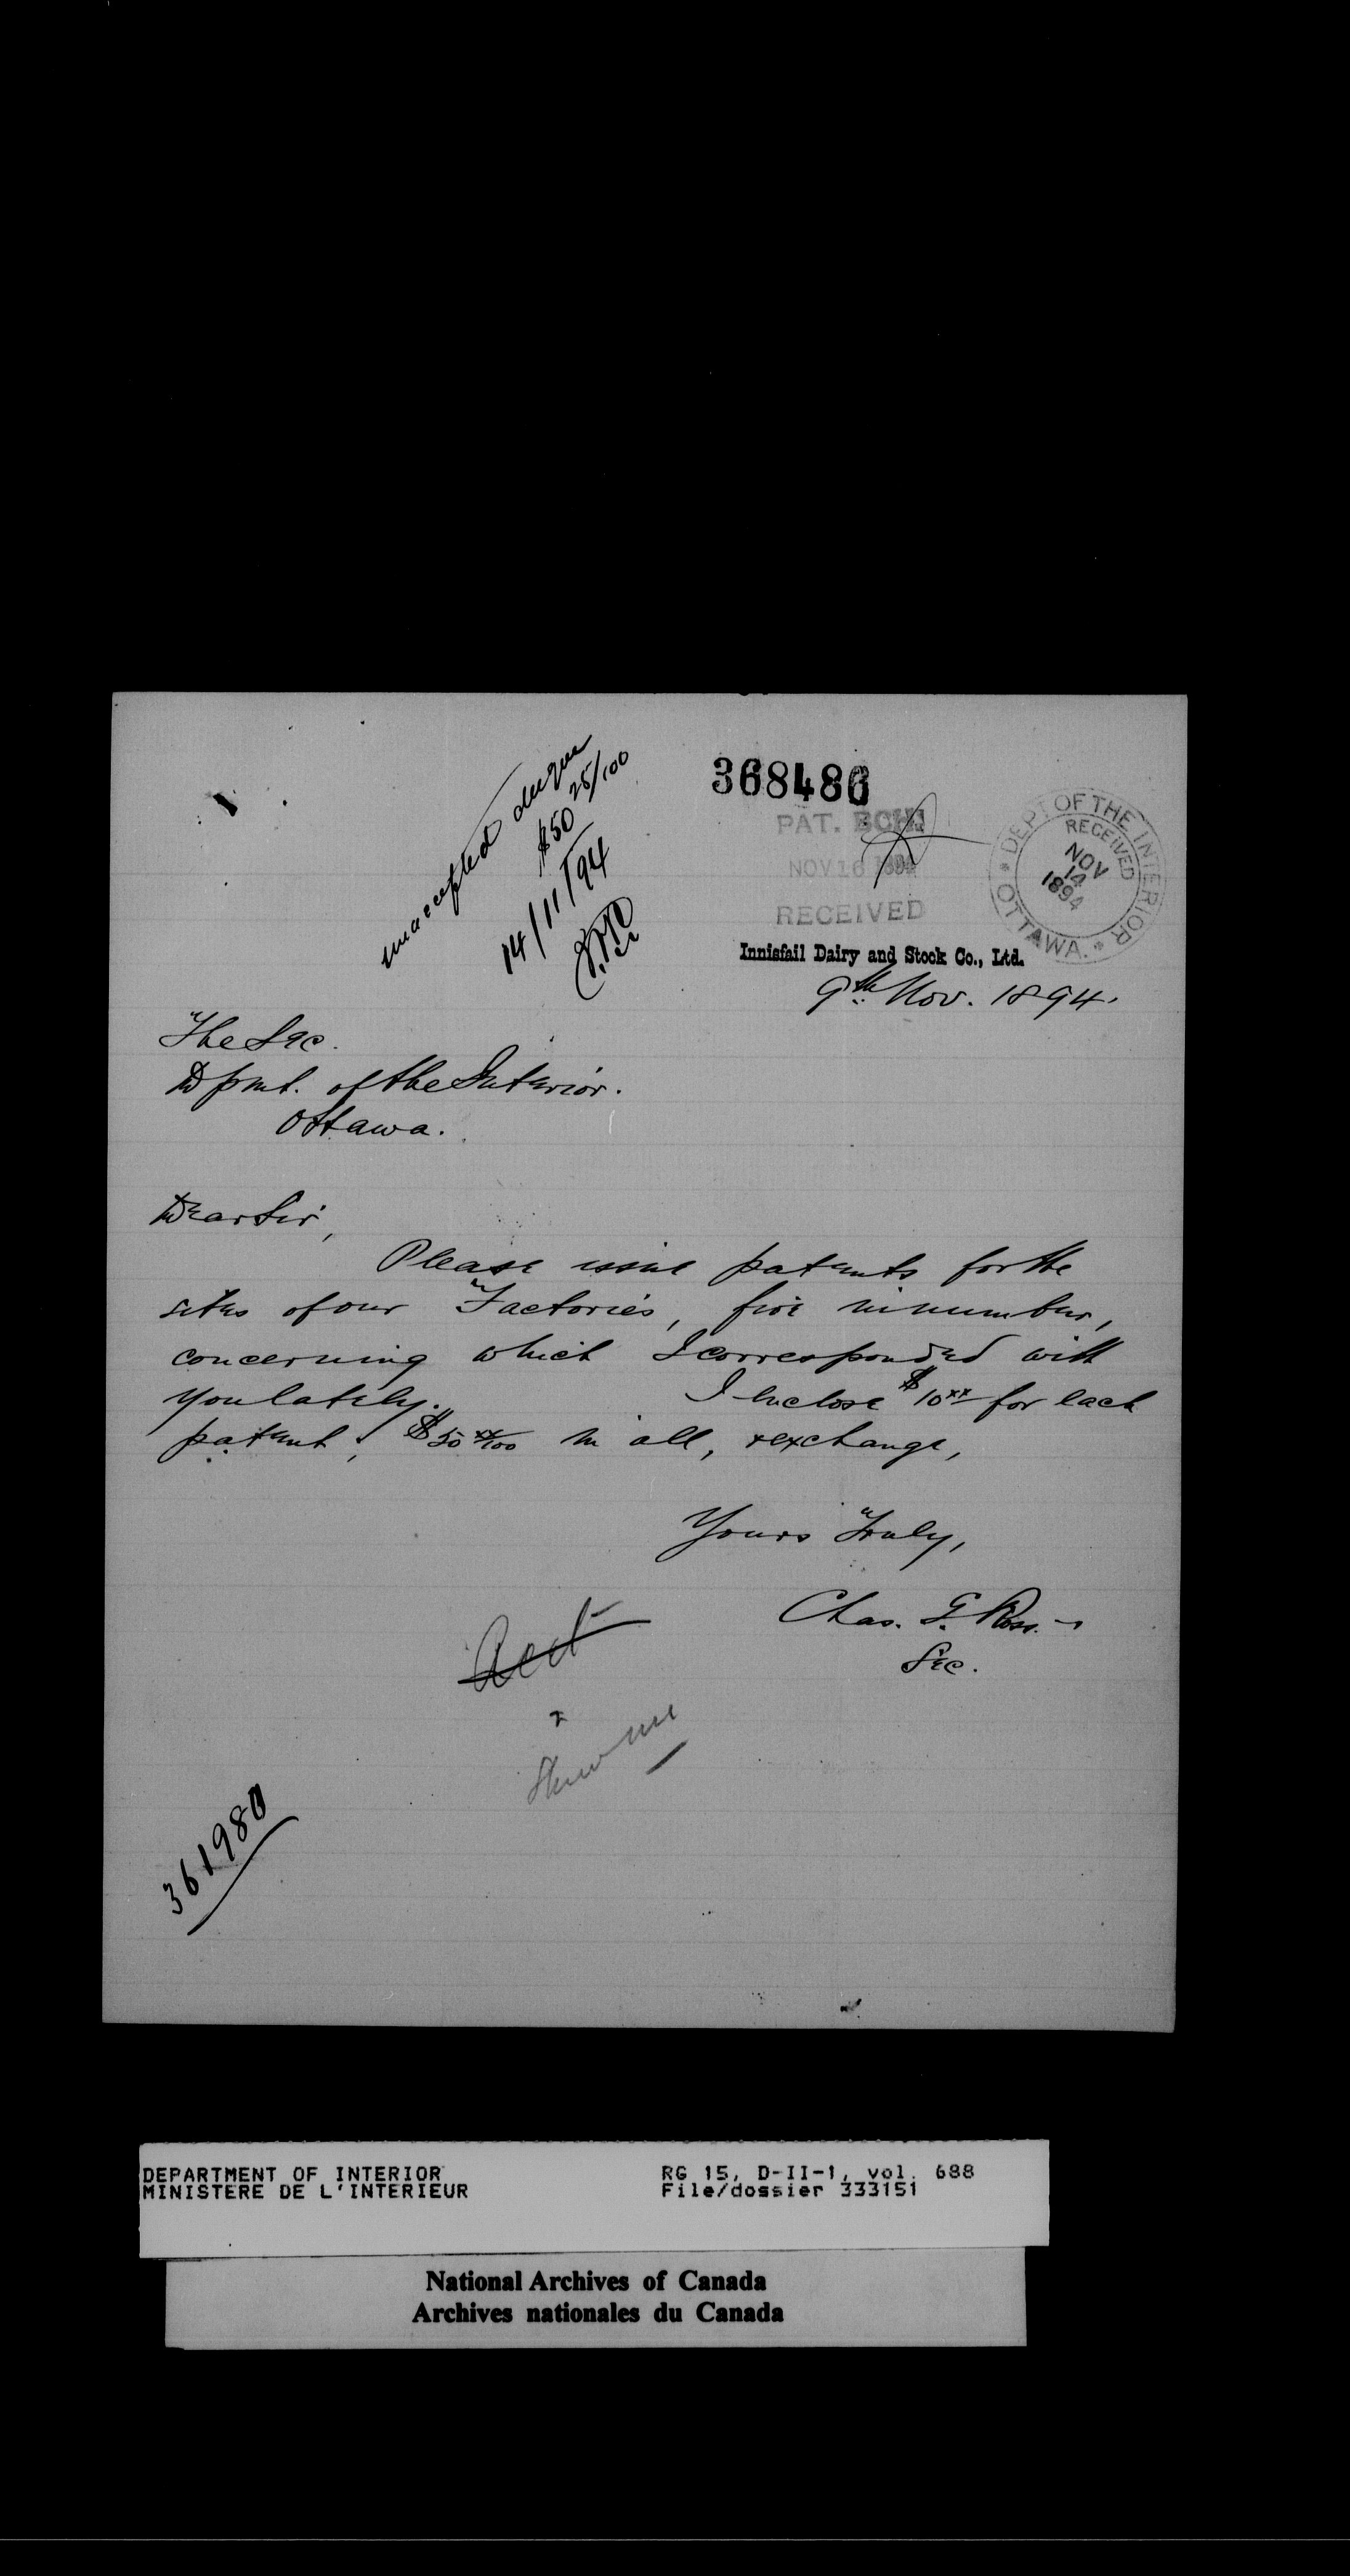 unaccepted cheque
$50 25/100
14/11/94
368486
PAT. BCH
NOV 16 1894
RECEIVED
DEPT OF THE INTERIOR
RECEIVED
NOV
14
1894
* OTTAWA. *
Innisfail Dairy and Stock Co., Ltd.
9th Nov. 1894.
The Sec.
Dpmt. of the Interior.
Ottawa.
Dear Sir,
Please issue patents for the
sites of our Factories, five in number,
concerning which I corresponded with
you lately. I enclose $10xx for each
patent, $50 xx/100 in all, & exchange,
Yours Truly,
Chas. F. Ross.
Sec.
Acct
Shew me
361980
DEPARTMENT OF INTERIOR
MINISTERE DE L'INTERIEUR
RG 15, D-II-1, vol. 688
File/dossier 333151
National Archives of Canada
Archives nationales du Canada